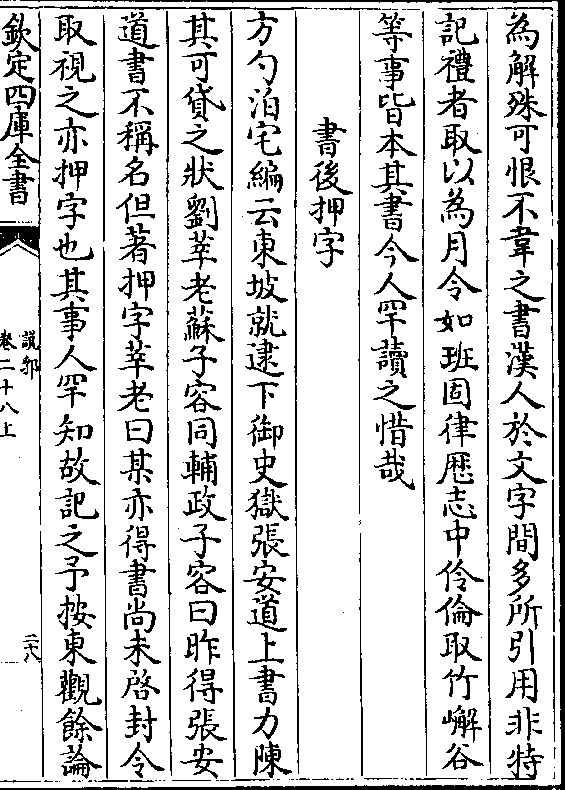 為解殊可恨不韋之書漢人於文字間多所引用非特
記禮者取以為月令如班固律厯志中伶倫取竹嶰谷
等事皆本其書今人罕讀之惜哉
書後押字
方勺泊宅編云東坡就逮下御史獄張安道上書力陳
其可貸之狀劉莘老蘇子容同輔政子容曰昨得張安
道書不稱名但著押字莘老曰某亦得書尚未啓封令
取視之亦押字也其事人罕知故記之予按東觀餘論
欽定四庫全書
說郛
卷二十八上
二十八